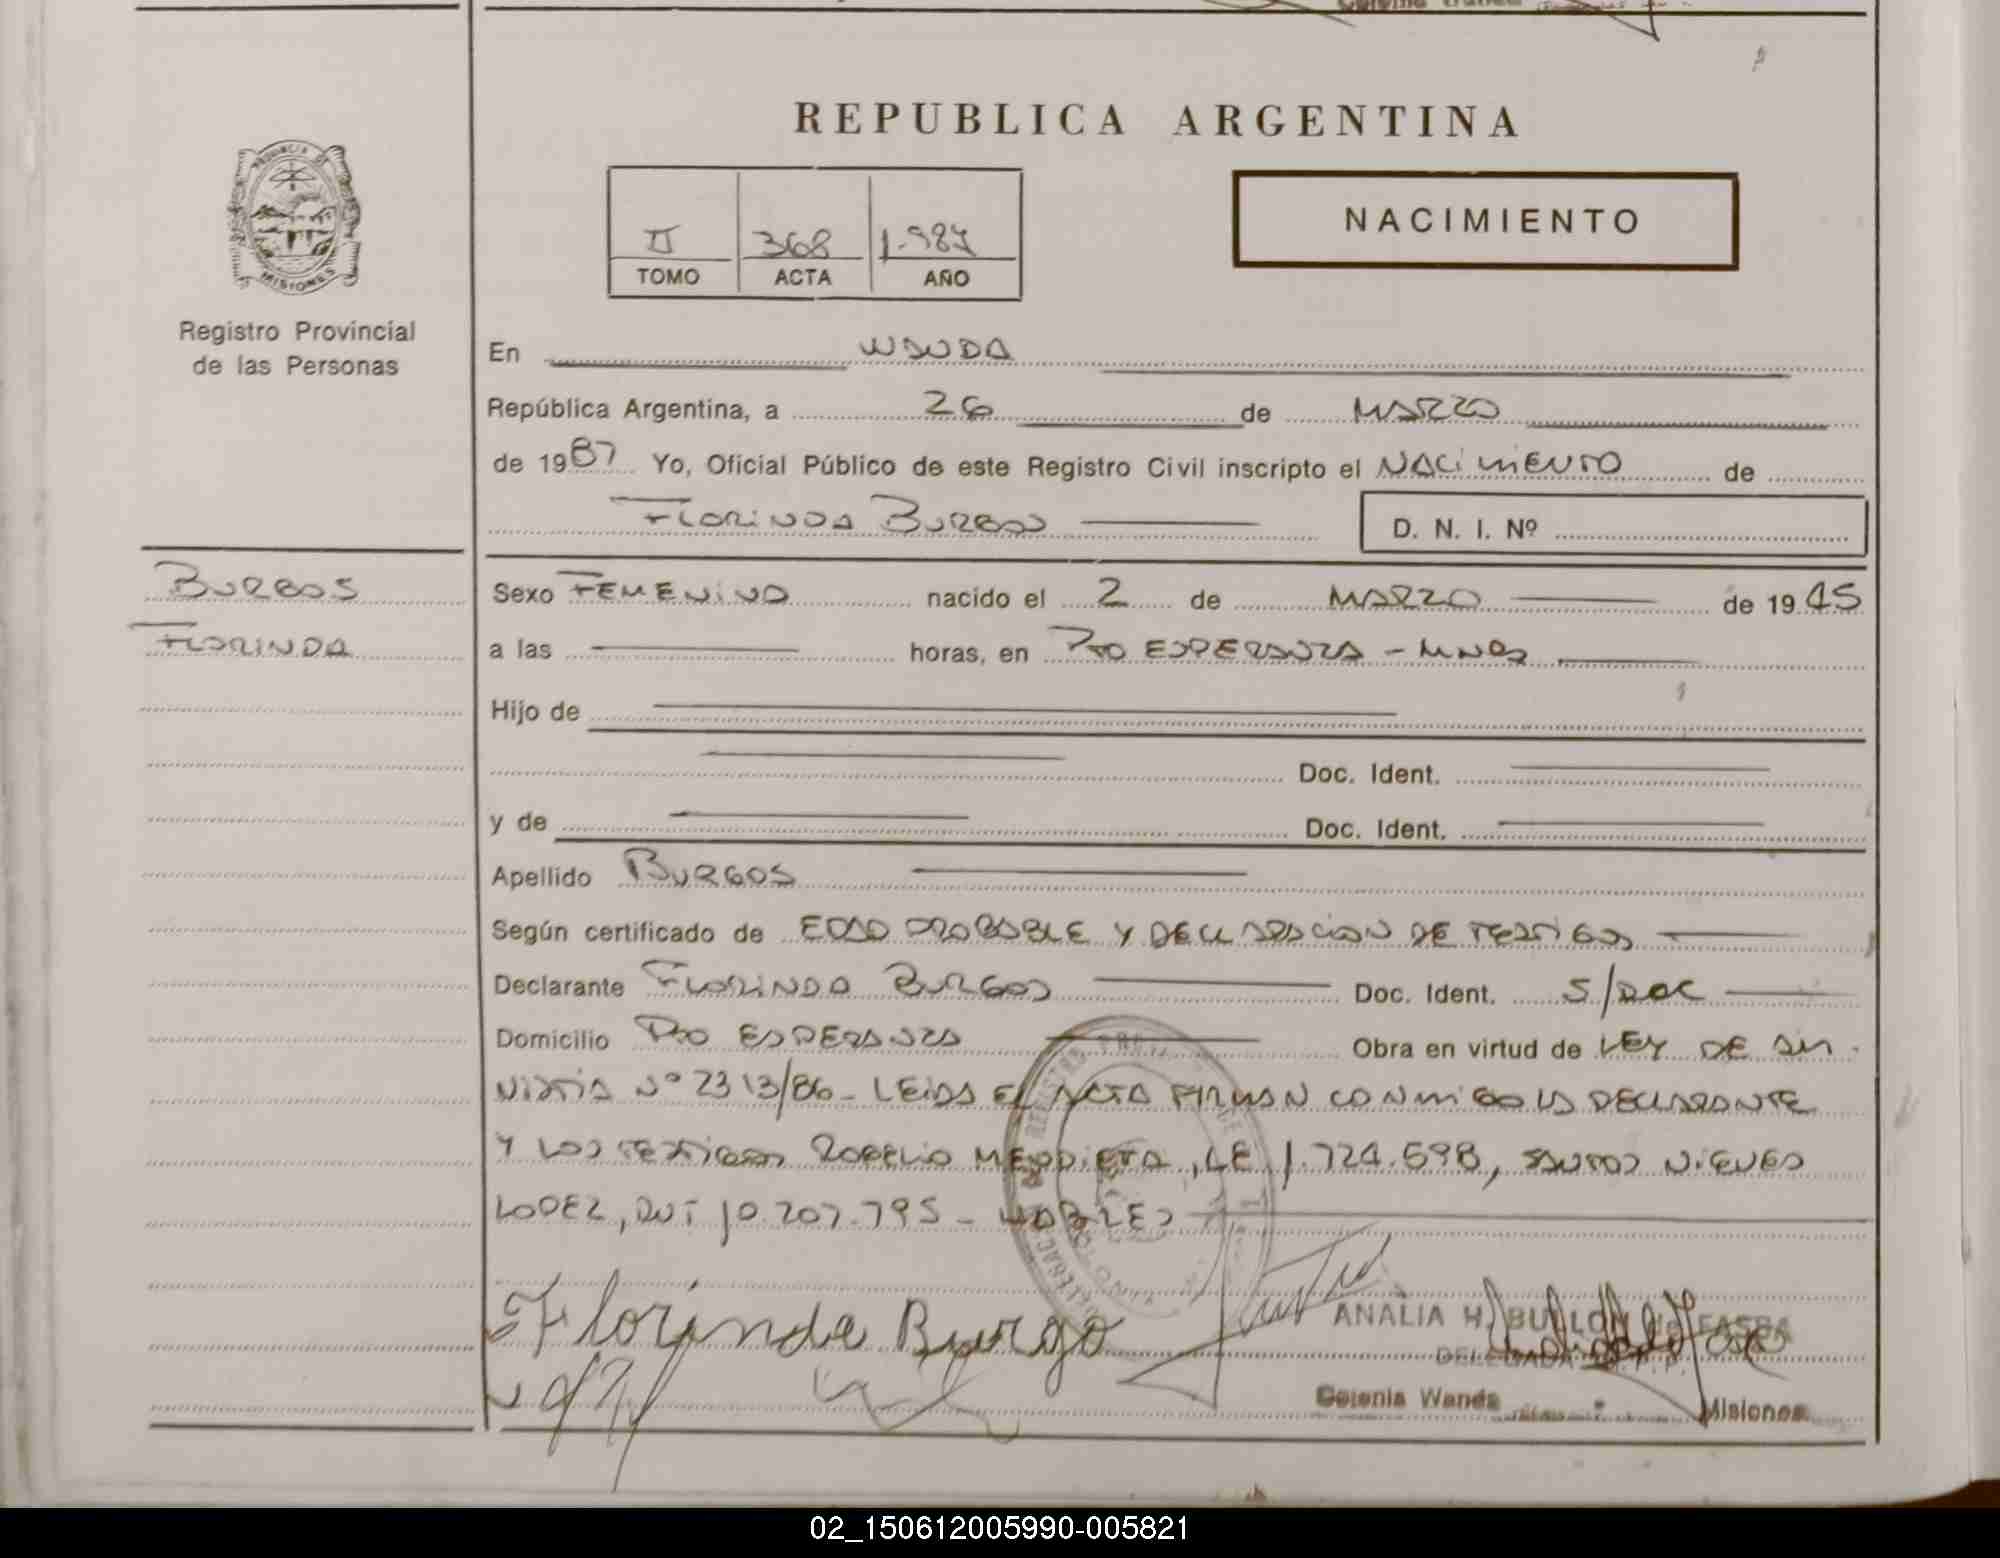 REPUBLICA ARGENTINA
PROVINCIA DE
MISIONES
Registro Provincial
de las Personas
II 368 1.987
TOMO ACTA AÑO
NACIMIENTO
En WANDA
República Argentina, a 26 de MARZO
de 1987 Yo, Oficial Público de este Registro Civil inscripto el NACIMIENTO de
FLORINDA BURGOS D. N. I. Nº
BURGOS
FLORINDA
Sexo FEMENINO nacido el 2 de MARZO de 1945
a las horas, en Pto ESPERANZA - MNES
Hijo de
Doc. Ident.
y de Doc. Ident.
Apellido BURGOS
Según certificado de EDAD PROBABLE Y DECLARACION DE TESTIGOS
Declarante FLORINDA BURGOS Doc. Ident. S/DOC
Domicilio Pto ESPERANZA Obra en virtud de LEY DE AM-
NISTIA Nº 2313/86 - LEIDA EL ACTA FIRMAN CONMIGO LA DECLARANTE
Y LOS TESTIGOS ROGELIO MENDIETA, LE 1.724.698, SANTOS NIEVES
LOPEZ, DNI 10.207.795 - HABILES
Florinda Burgo
ANALIA H. BULLON de
DELEGADA
Colonia Wanda Misiones
02_150612005990-005821